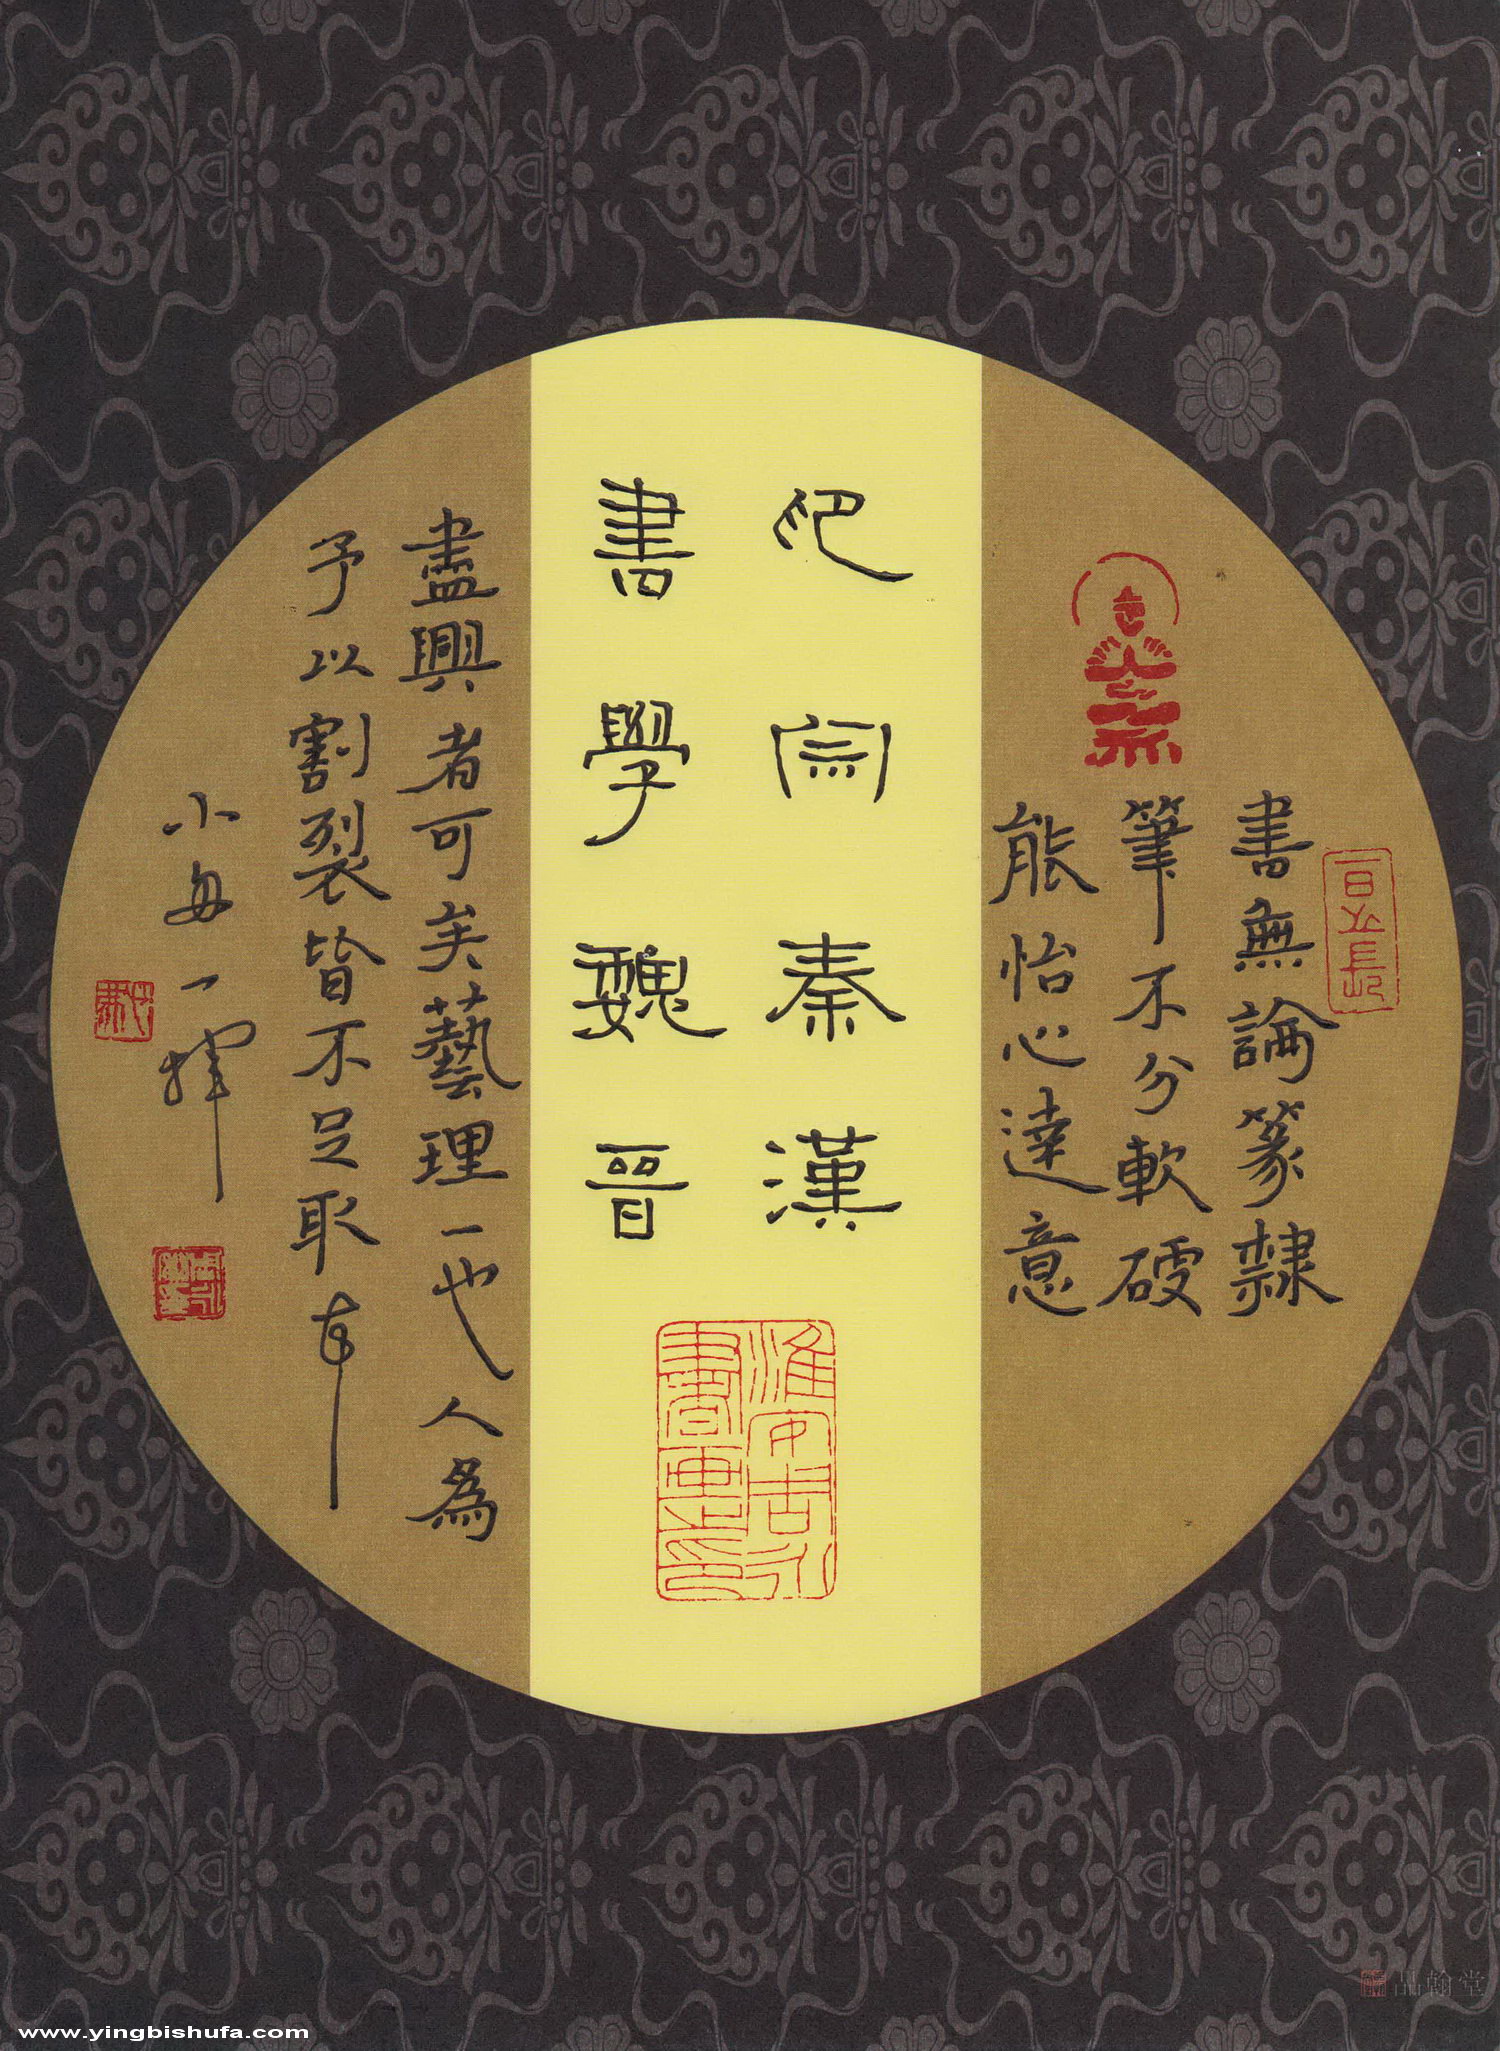 印宗秦漢
書學魏晉
書無論篆隸
筆不分軟硬
能怡心達意
盡興者可矣藝理一也人為
予以割裂皆不足取
小每一揮
淮安
書畫印
品翰堂
www.yingbishufa.com